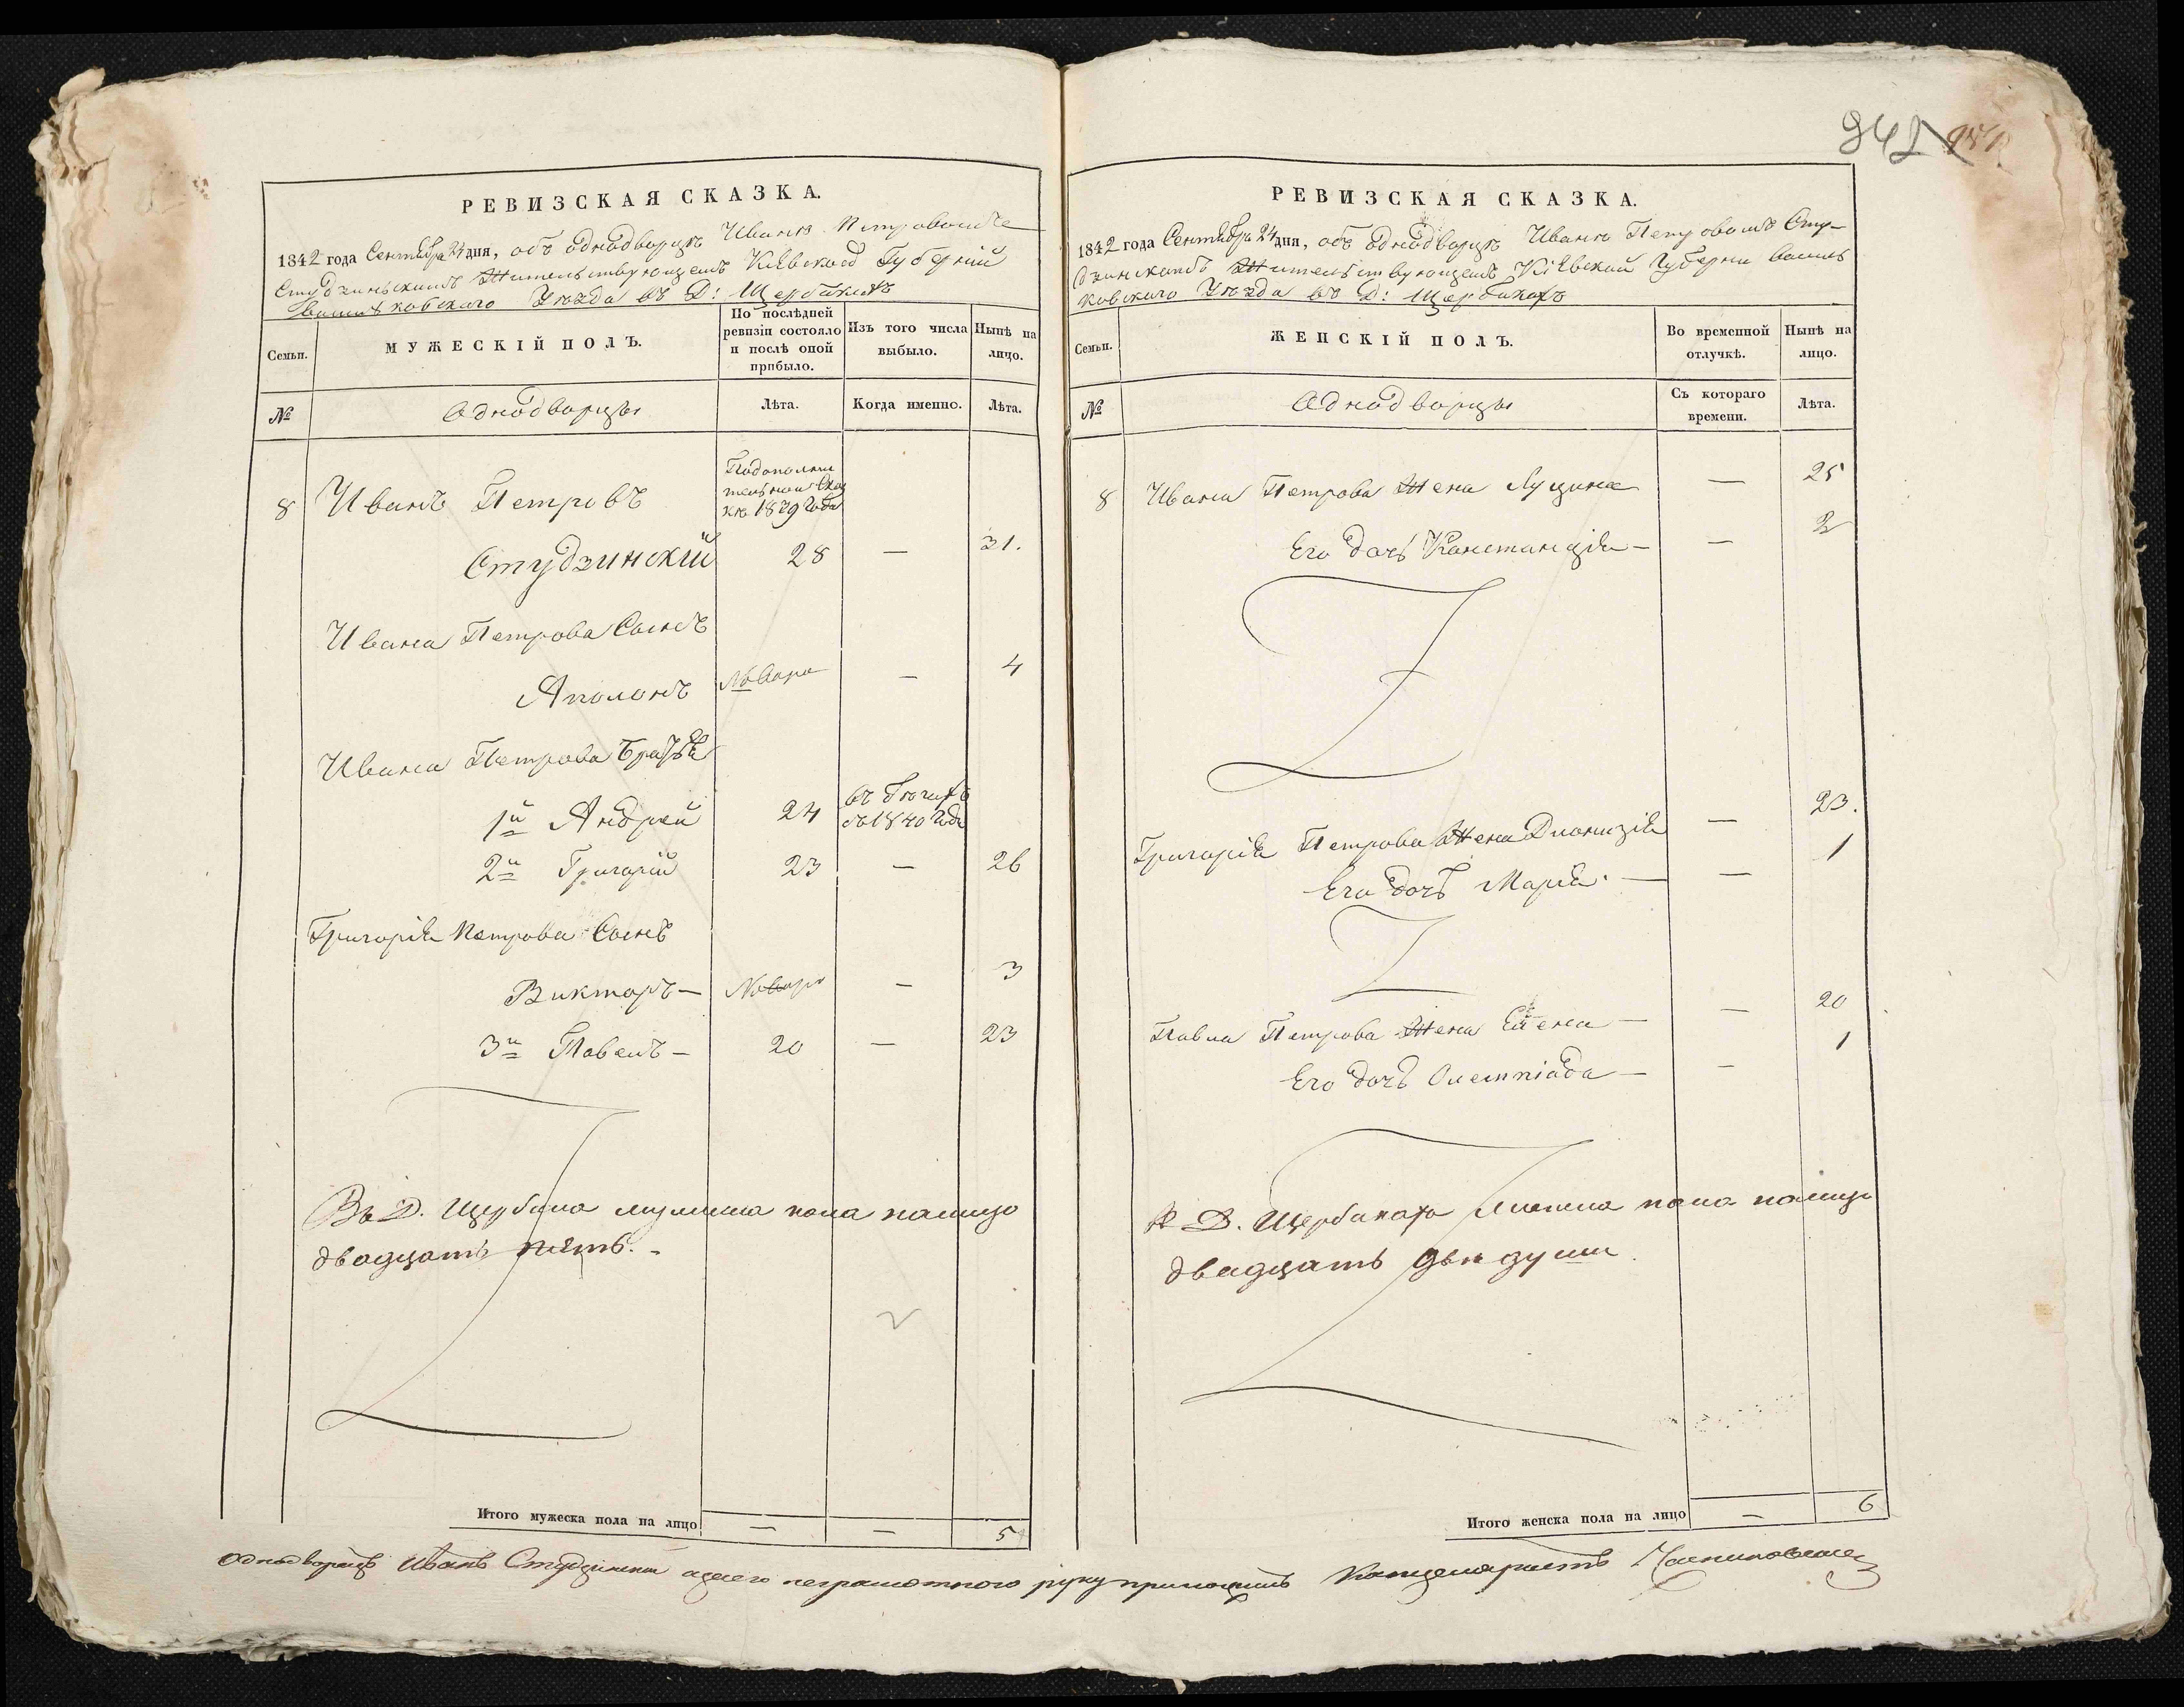 942
РЕВИЗСКАЯ СКАЗКА.
1842 года Сентября 24 дня, объ однодворцѣ Иванѣ Петровомъ
Студзинскимъ Жительствующемъ Кіевской Губерніи
Васильковскаго Уѣзда въ Д: Щербакахъ
Семьи.
МУЖЕСКІЙ ПОЛЪ.
По послѣдней ревизіи состояло и послѣ оной прибыло.
Изъ того числа выбыло.
Нынѣ на лицо.
№
Однодворцы
Лѣта.
Когда именно.
Лѣта.
По дополни
тельной Сказ
кѣ 1839 Года
8 Иванъ Петровъ
Студзинскій 28 — 31.
Ивана Петрова Сынъ
Аполонъ Новоро — 4
Ивана Петрова Братья
1й Андрей 24 въ бѣгахъ
съ 1840 Года
2й Григорій 23 — 26
Григорія Петрова Сынъ
Викторъ — Новоро — 3
3й Павелъ — 20 — 23
Въ Д. Щербака мужеска пола налицо
двадцать пять. -
Итого мужеска пола на лицо — — 5
РЕВИЗСКАЯ СКАЗКА.
1842 года Сентября 24 дня, объ однодворцѣ Иванѣ Петровомъ Сту-
дзинскимъ Жительствующемъ Кіевской Губерни Василь
ковскаго Уѣзда въ Д: Щербакахъ
Семьи.
ЖЕНСКІЙ ПОЛЪ.
Во временной отлучкѣ.
Нынѣ на лицо.
№
Однодворцы
Съ котораго времени.
Лѣта.
8 Ивана Петрова Жена Луцина — 25
Его дочь Констанція — — 2
Григорія Петрова Жена Дионизія — 23.
Его дочь Марія. — — 1
Павла Петрова Жена Елена — — 20
Его дочь Олемпіада — — 1
В Д. Щербакахъ женска пола налицо
двадцать двѣ души
Итого женска пола на лицо — 6
Однодворецъ Иванъ Студзинский а за его неграмотного руку приложилъ Канцеляристъ